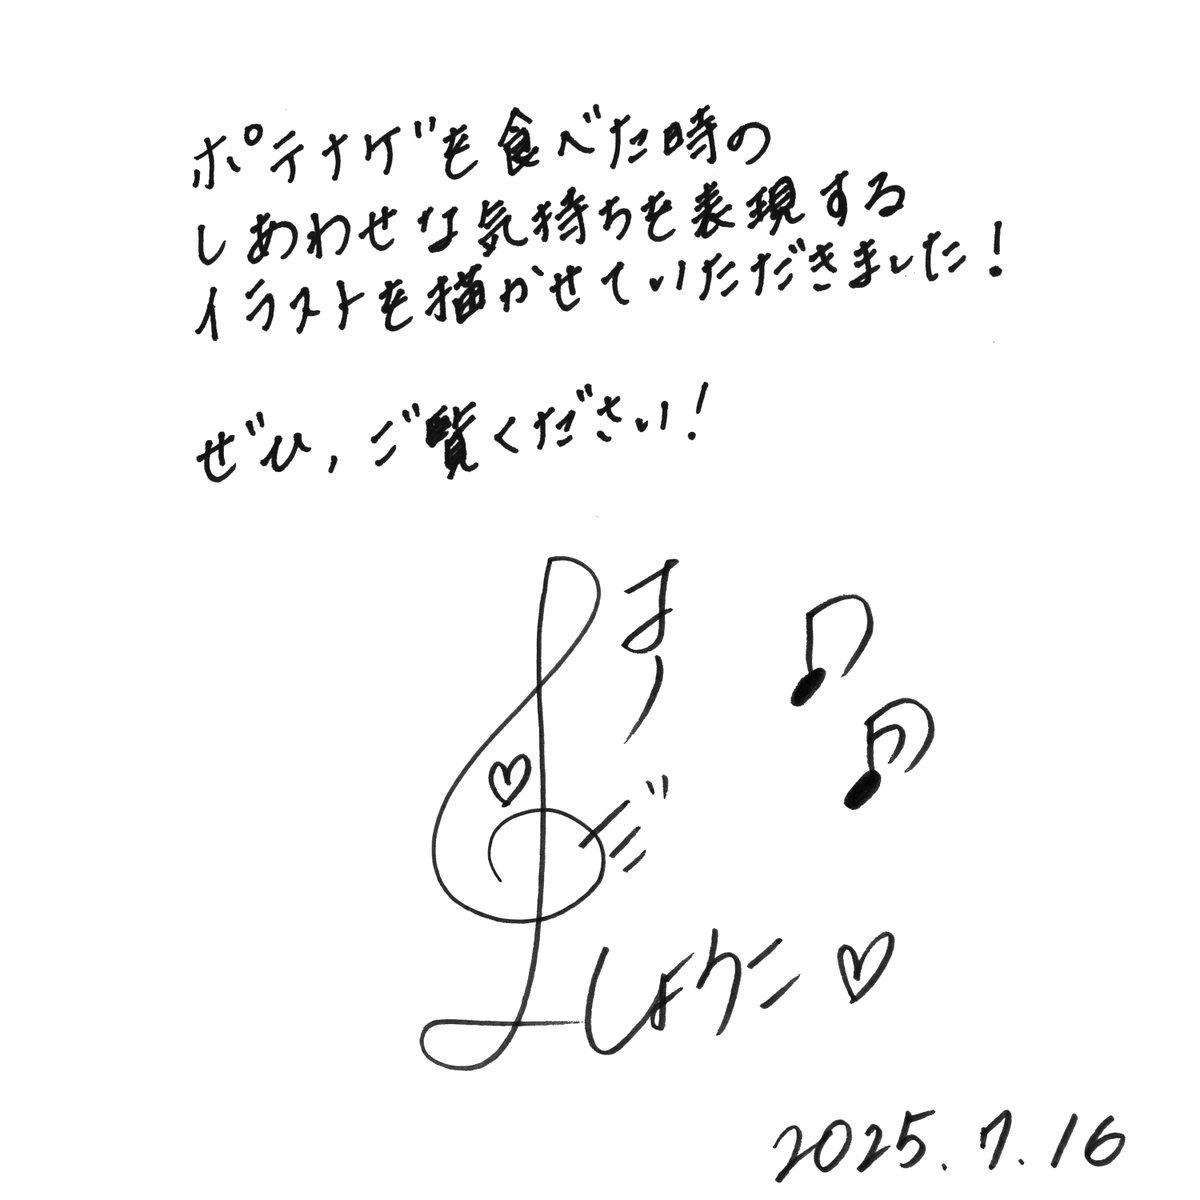 ポテナゲを食べた時の
しあわせな気持ちを表現する
イラストを描かせていただきました！
ぜひ，ご覧ください！
はいだ
しょうこ♡
2025.7.16